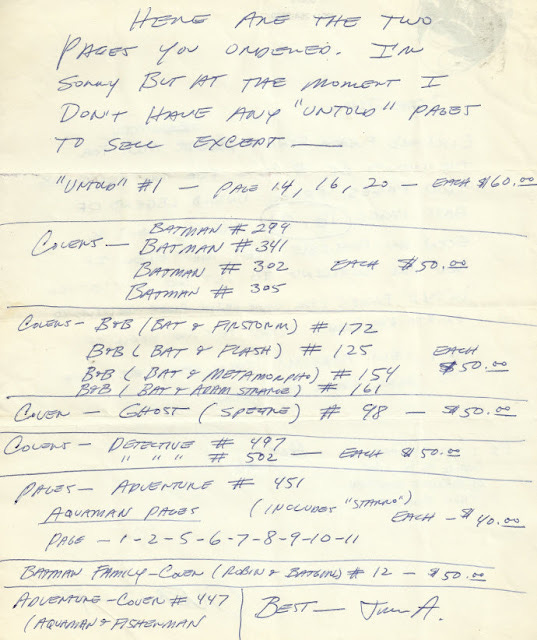 HERE ARE THE TWO
PAGES YOU ORDERED. I'M
SORRY BUT AT THE MOMENT I
DON'T HAVE ANY "UNTOLD" PAGES
TO SELL EXCEPT —
"UNTOLD" #1 — PAGE 14, 16, 20 — EACH $60.00
COVERS — BATMAN # 294
BATMAN # 341
BATMAN # 302 EACH $50.00
BATMAN # 305
COVERS - B&B (BAT & FIRSTORM) # 172
B&B ( BAT & FLASH) # 125 EACH
B&B ( BAT & METAMORPHO) # 154 $50.00
B&B ( BAT & ADAM STRANGE) # 161
COVER — GHOST (SPECTRE) # 98 — $50.00
COVERS — DETECTIVE # 497
" " " # 502 — EACH $50.00
PAGES — ADVENTURE # 451
AQUAMAN PAGES (INCLUDES "STARRO")
EACH - $40.00
PAGE — 1-2-5-6-7-8-9-10-11
BATMAN FAMILY - COVER (ROBIN & BATGIRL) # 12 — $50.00
ADVENTURE - COVER # 447
(AQUAMAN & FISHERMAN
BEST — Jim A.